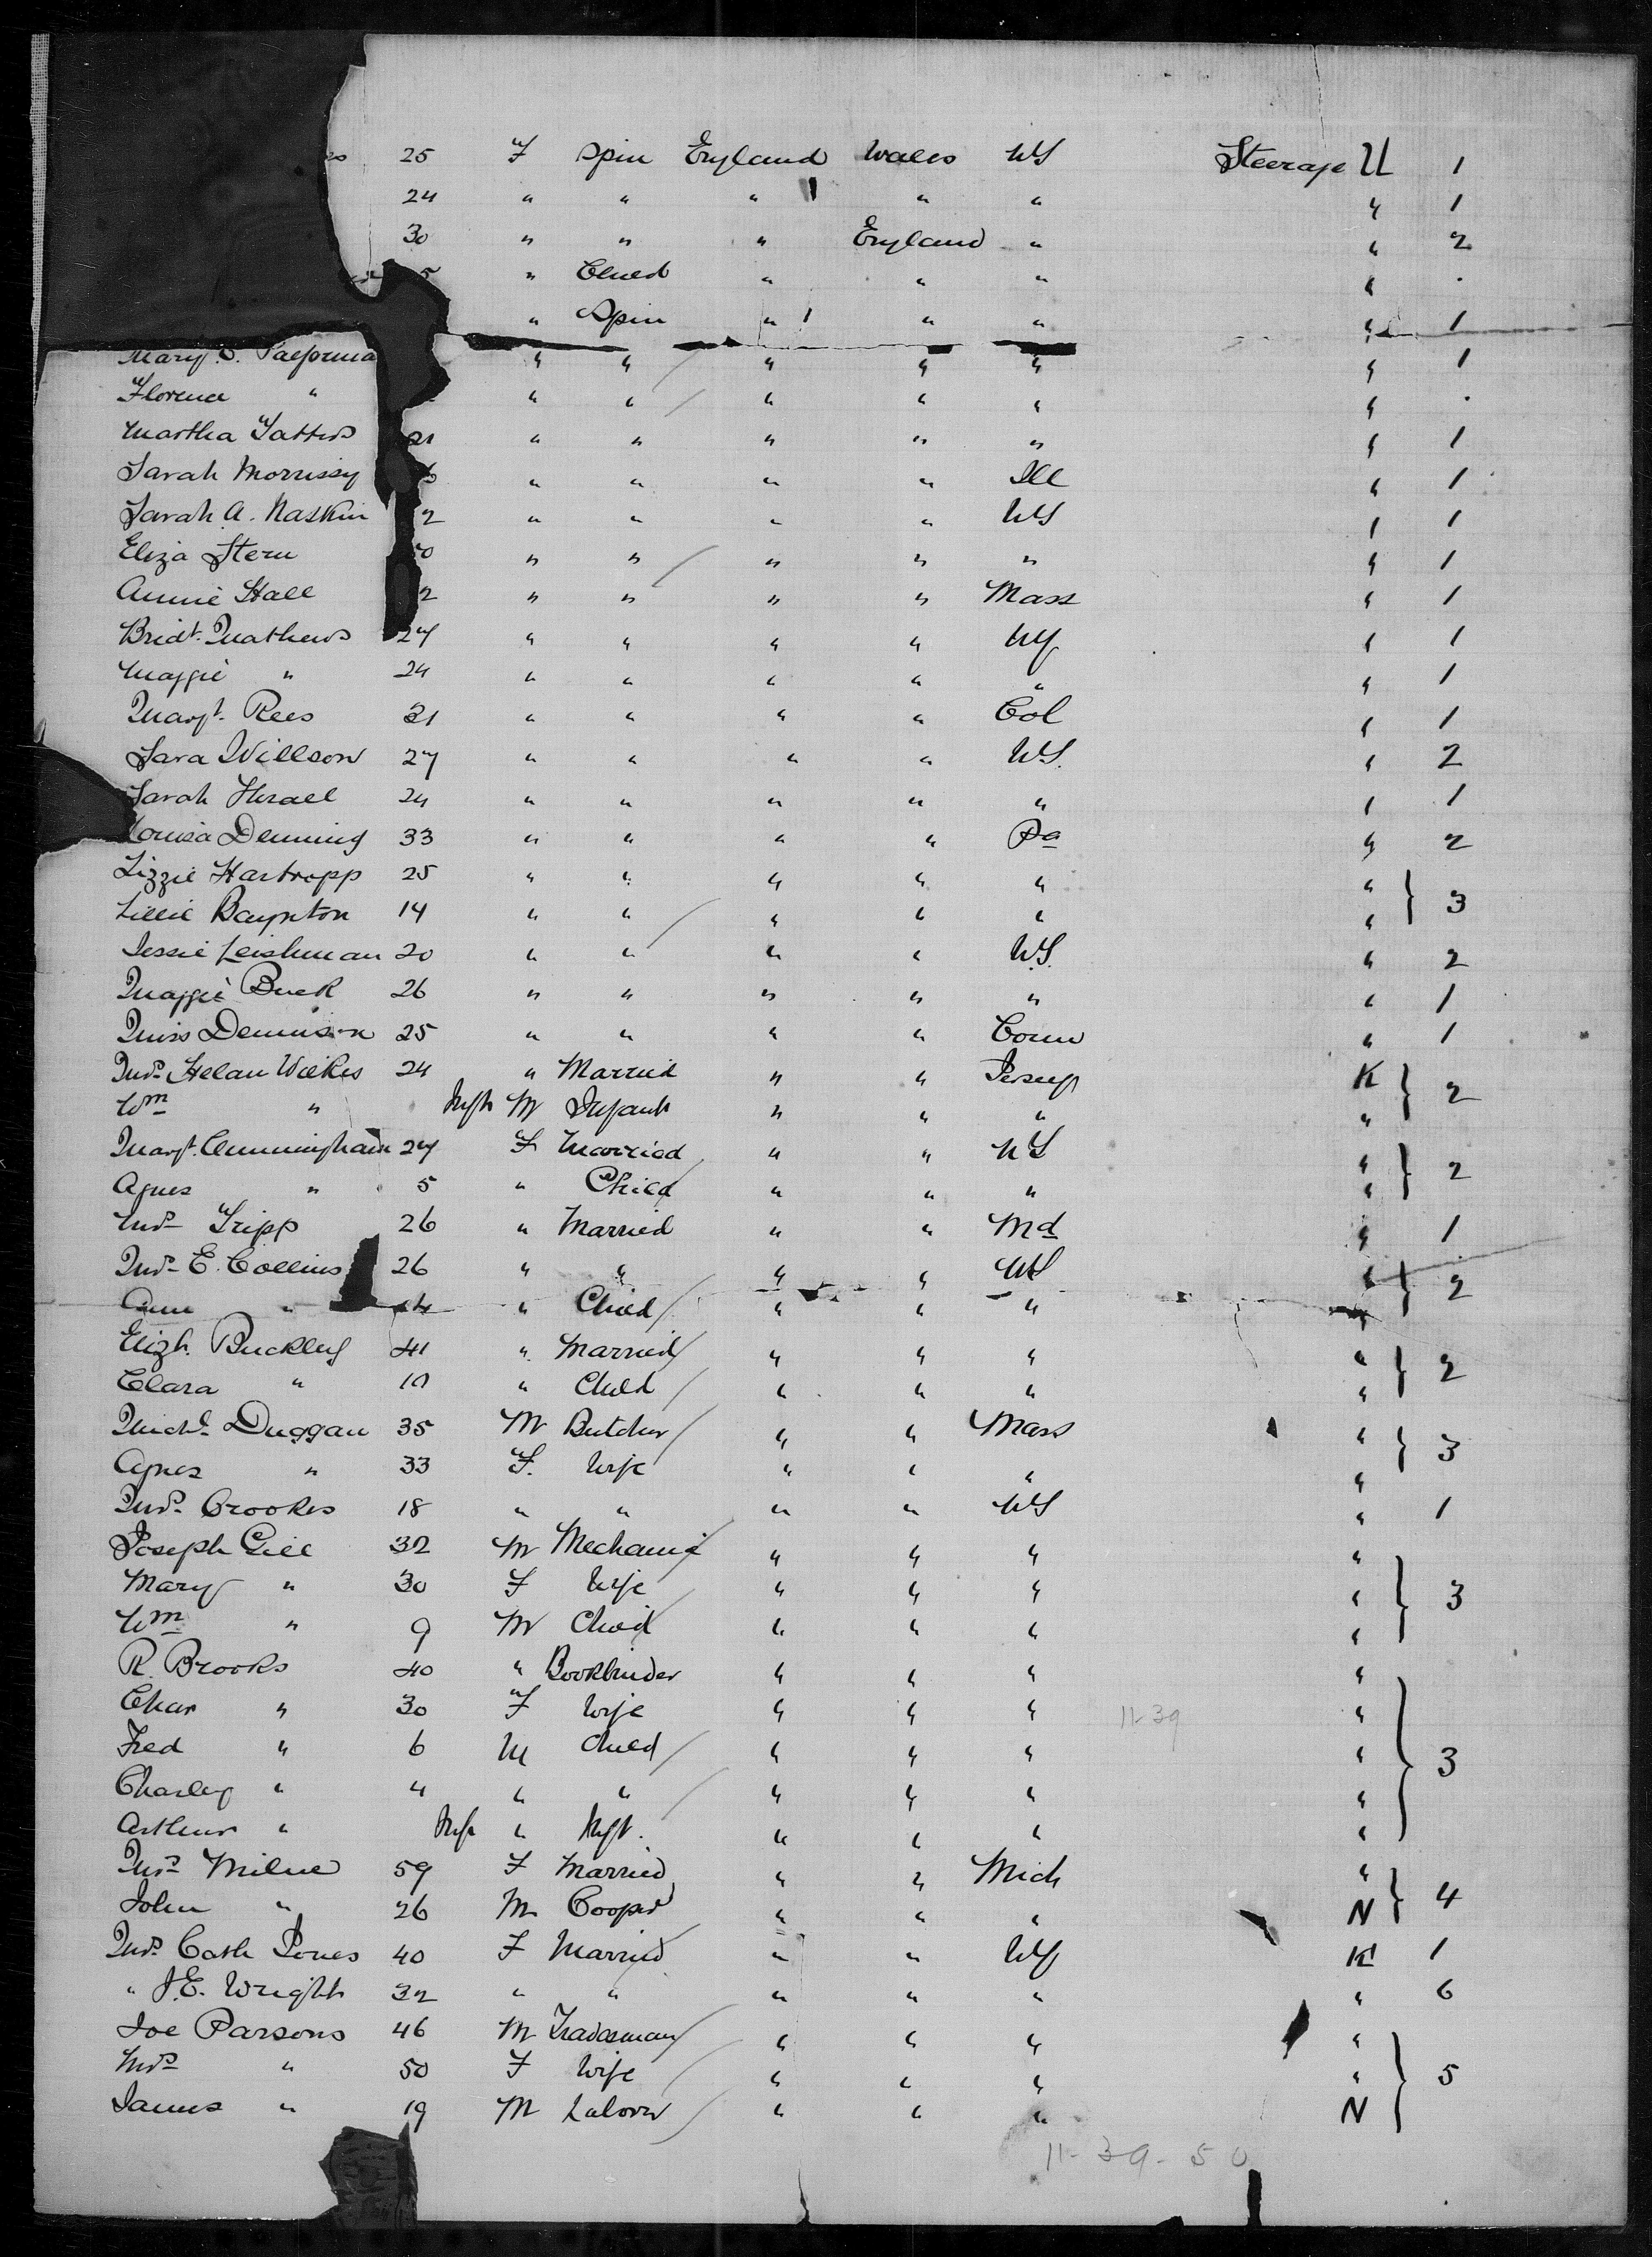 25 F Spin England Wales US Steerage U 1
24 " " " " " " 1
30 " " " England " " 2
5 " Child " " " " .
" Spin " " " " 1
Mary " " " " " " 1
Florence " " " " " " " .
Martha 21 " " " " " " 1
Sarah Morrissy 6 " " " " Ill " 1
Sarah A. Naskin 2 " " " " US " 1
Eliza Stern 0 " " " " " " 1
Annie Hall 2 " " " " Mass " 1
Bridt. Mathews 27 " " " " NY " 1
Maggie " 24 " " " " " " 1
Margt. Rees 31 " " " " Col " 1
Sara Willson 27 " " " " US. " 2
Sarah 24 " " " " " " 1
Louisa Denning 33 " " " " Pa " 2
Lizzie Hartropp 25 " " " " " " } 3
Lillie Baynton 14 " " " " " "
Jessie Leishman 20 " " " " U.S. " 2
Maggie Buck 26 " " " " " " 1
Miss Dennison 25 " " " " Conn " 1
Mrs Helan Wilkes 24 " Married " " Jersey K } 2
Wm " Inft M Infant " " " "
Margt. Cunningham 27 F Married " " US " } 2
Agnes " 5 " Child " " " "
Mrs Tripp 26 " Married " " Md " 1
Mrs E. Collins 26 " " " " US " } 2
Ann " " Child " " " "
Elizh. Buckley 41 " Married " " " " } 2
Clara " 10 " Child " " " "
Michl. Duggan 35 M Butcher " " Mass " } 3
Agnes " 33 F. Wife " " " "
Mrs Crookes 18 " " " " US " 1
Joseph Gill 32 M Mechanic " " " " } 3
Mary " 30 F Wife " " " "
Wm " 9 M Child " " " "
R. Brooks 40 " Bookbinder " " " " } 3
Char " 30 F Wife " " " " 11-39
Fred " 6 M Child " " " "
Charley " 4 " " " " " "
Arthur " Inft " Inft. " " " "
Mrs Milne 59 F Married " " Mich " } 4
John " 26 M Cooper " " " N
Mrs Cath Jones 40 F Married " " NY K 1
" J.E. Wright 32 " " " " " " 6
Joe Parsons 46 M Tradesman " " " " } 5
Mrs " 50 F Wife " " " "
James " 19 M Laborer " " " N
11-39-50